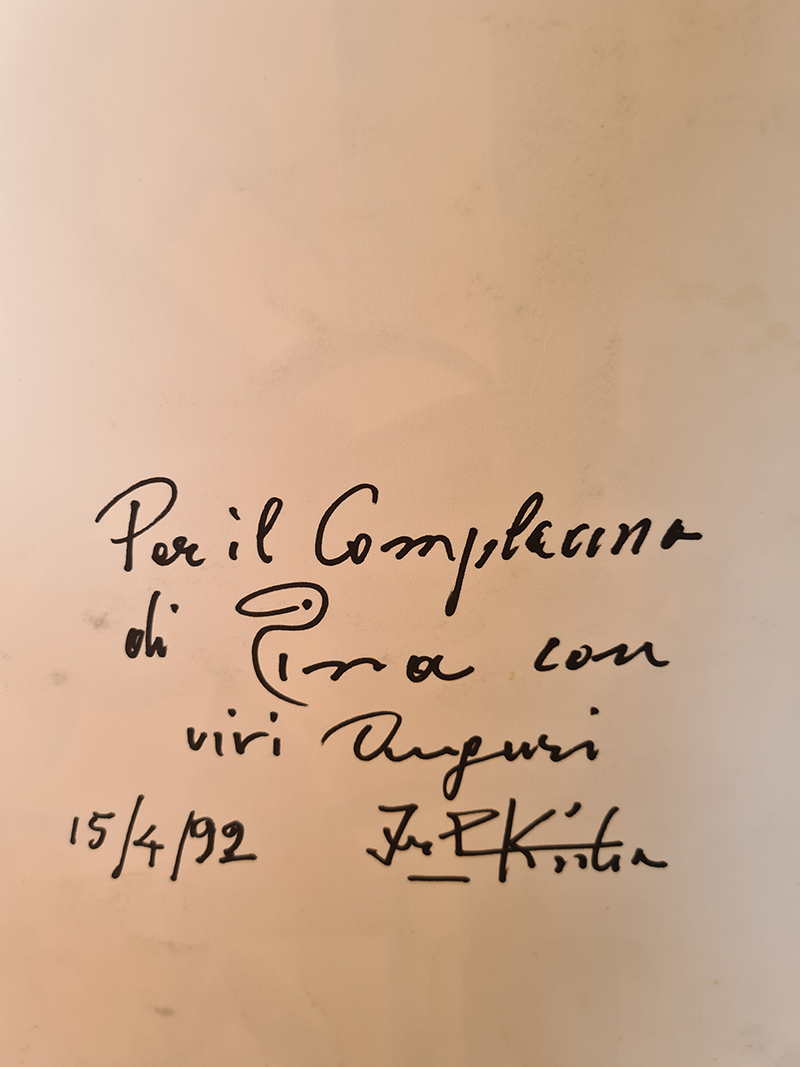 Per il Compleanno
di Pina con
vivi Auguri
15/4/92